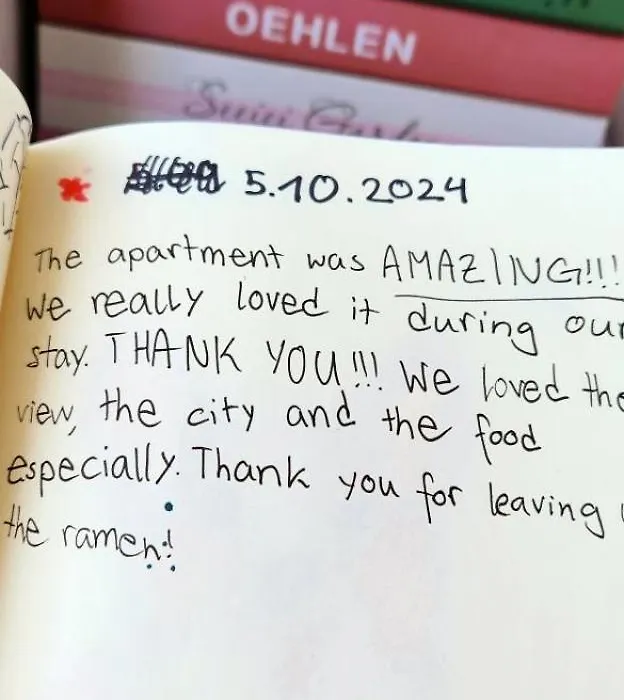 OEHLEN
5.10.2024
The apartment was AMAZING!!!
we really loved it during our
stay. THANK YOU!!! We loved the
view, the city and the food
especially. Thank you for leaving
the ramen!